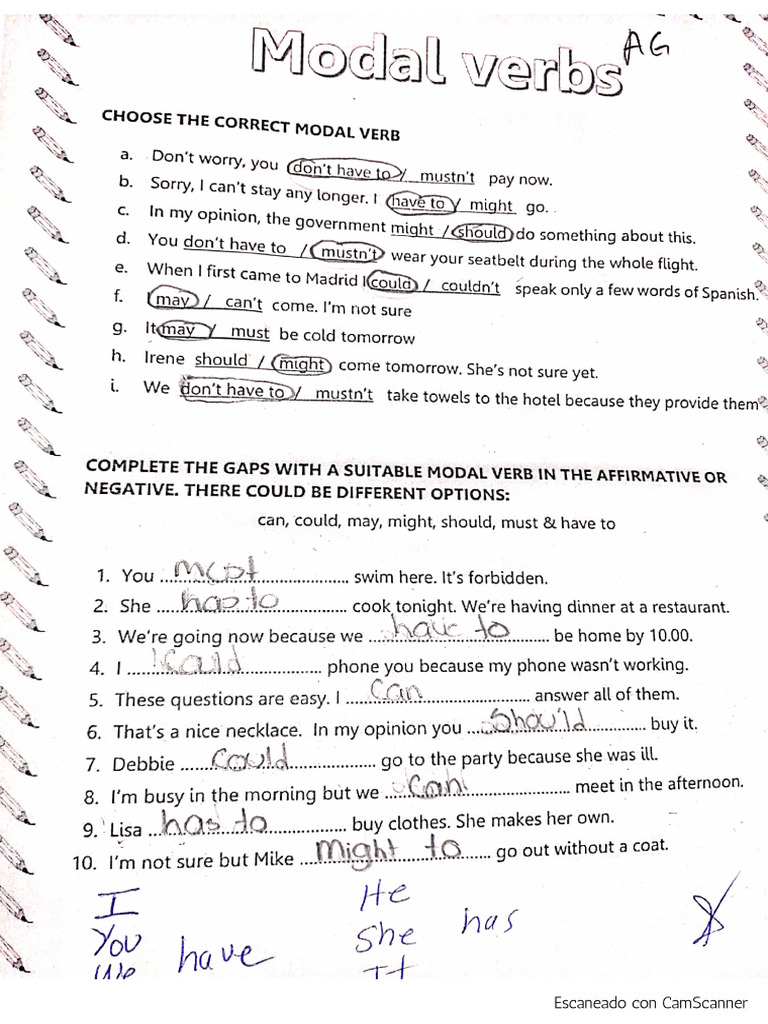 Modal verbs AG
CHOOSE THE CORRECT MODAL VERB
a. Don't worry, you don't have to / mustn't pay now.
b. Sorry, I can't stay any longer. I have to / might go.
c. In my opinion, the government might / should do something about this.
d. You don't have to / mustn't wear your seatbelt during the whole flight.
e. When I first came to Madrid I could / couldn't speak only a few words of Spanish.
f. may / can't come. I'm not sure
g. It may / must be cold tomorrow
h. Irene should / might come tomorrow. She's not sure yet.
i. We don't have to / mustn't take towels to the hotel because they provide them
COMPLETE THE GAPS WITH A SUITABLE MODAL VERB IN THE AFFIRMATIVE OR
NEGATIVE. THERE COULD BE DIFFERENT OPTIONS:
can, could, may, might, should, must & have to
1. You ........ swim here. It's forbidden.
2. She ... has to ... cook tonight. We're having dinner at a restaurant.
3. We're going now because we ... have to ... be home by 10.00.
4. I ... Could ... phone you because my phone wasn't working.
5. These questions are easy. I ... Can ... answer all of them.
6. That's a nice necklace. In my opinion you ... Should ... buy it.
7. Debbie ... Could ... go to the party because she was ill.
8. I'm busy in the morning but we ... Can ... meet in the afternoon.
9. Lisa ... has to ... buy clothes. She makes her own.
10. I'm not sure but Mike ... Might to ... go out without a coat.
I He
You have She has
We It
Escaneado con CamScanner